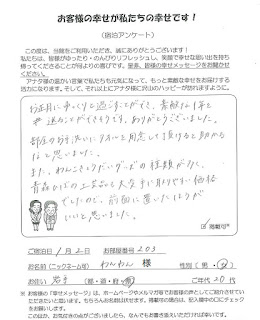 お客様の幸せが私たちの幸せです！
（宿泊アンケート）
この度は、当館をご利用いただき、誠にありがとうございます！
私たちは、皆様がゆったり・のんびりリフレッシュし、笑顔で幸せな思い出を持ち
帰ってくださることが何よりの喜びです。是非、皆様の幸せメッセージをお聞かせ
ください。
アナタ様の温かい言葉で私たちも元気になって、もっと素敵な幸せをお届けする
活力になります。そして、それ以上にアナタ様に沢山のハッピーが訪れますように。
お正月に ゆっくり過ごすことができ、素敵な1年を
送ることができそうです。ありがとうございました。
部屋のお手洗いにタオルを用意して頂けると助かるな
と思いました。
また、わんこそばグッズの種類が多く、
青森ひばの工芸品も大変お手頃な価格
でしたので、前面に置いたほうが
いいと思いました。
掲載可
ご宿泊日 1月2日 お部屋番号 203
お名前（ニックネーム可） わんわん 様 性別（男・女）
お住い 岩手（都・道・府・県） ご年代 20代
※お客様の「幸せメッセージ」は、ホームページやメルマガ等でお客様の声としてご紹介させてい
ただきたいと思います。もちろんお名前は伏せます。掲載可の場合は、記入欄中の□にチェック
をお願いします。
このほか、お気付きの点がございましたら、なんでもお書き添えいただければ幸いです。